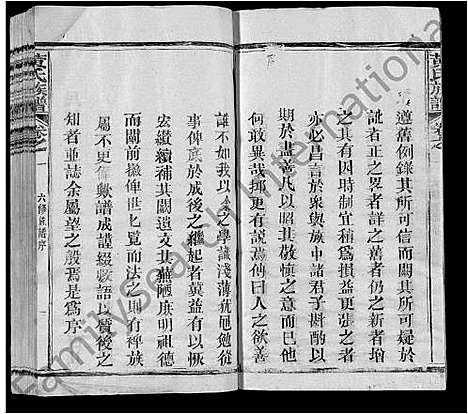 黃氏族譜
卷之一
遵舊例錄其所可信而闕其所可疑於
者正之畧者詳之舊者仍之新者增
之其有因時制宜稍爲損益更張之者
亦必昌言於衆與族中諸君子斟酌以
期於盡善凡以昭其敬慎之意而已
何敢異哉抑更有說焉傳曰人之欲善
誰不如我以學識淺薄猶黽勉從
事俾底於成後之繼起者冀益有以恢
宏纘續補其闕遺文其蕪陋庶明祖德
而闡前徽俾世世覽而法之則有裨族
屬不更偉歟譜成謹綴數語以質後之
知者並誌余屬望之殷焉是爲序
黃氏族譜
卷之一
六修族譜序
FamilySearch International